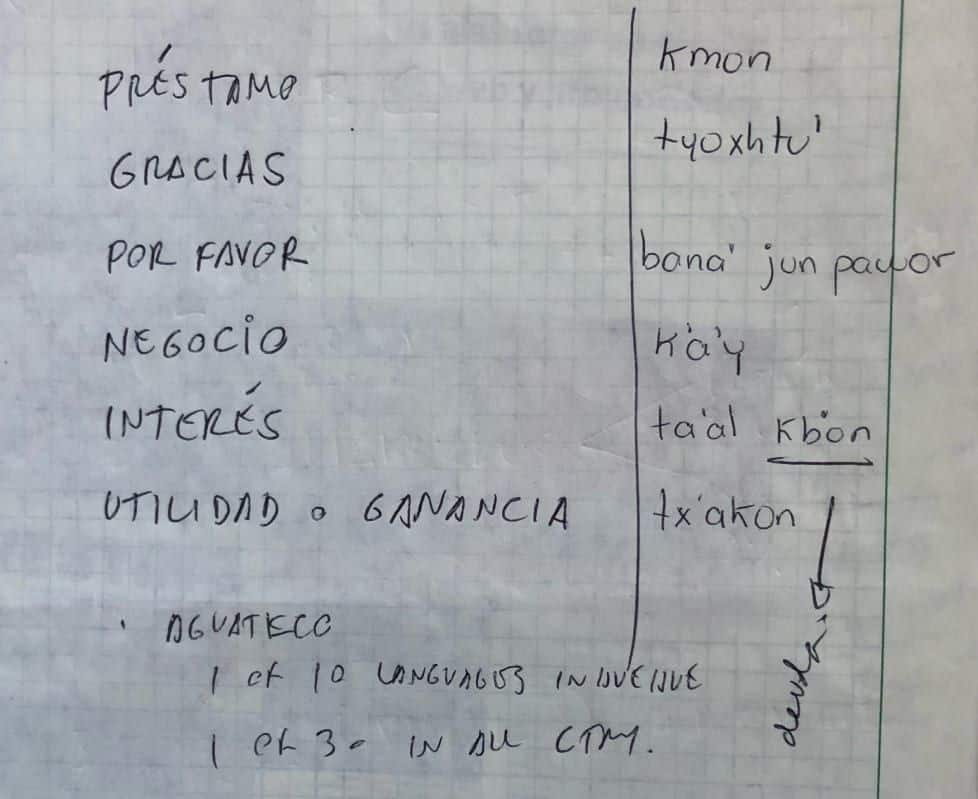 PRÉSTAMO kmon
GRACIAS tyoxhtu'
POR FAVOR bana' jun pawor
NEGOCIO k'a'y
INTERÉS ta'al kb'on
UTILIDAD o GANANCIA tx'akon
deuda
· AGUATECO
1 of 10 LANGUAGES IN HUEHUE
1 of 30 IN ALL CTRY.